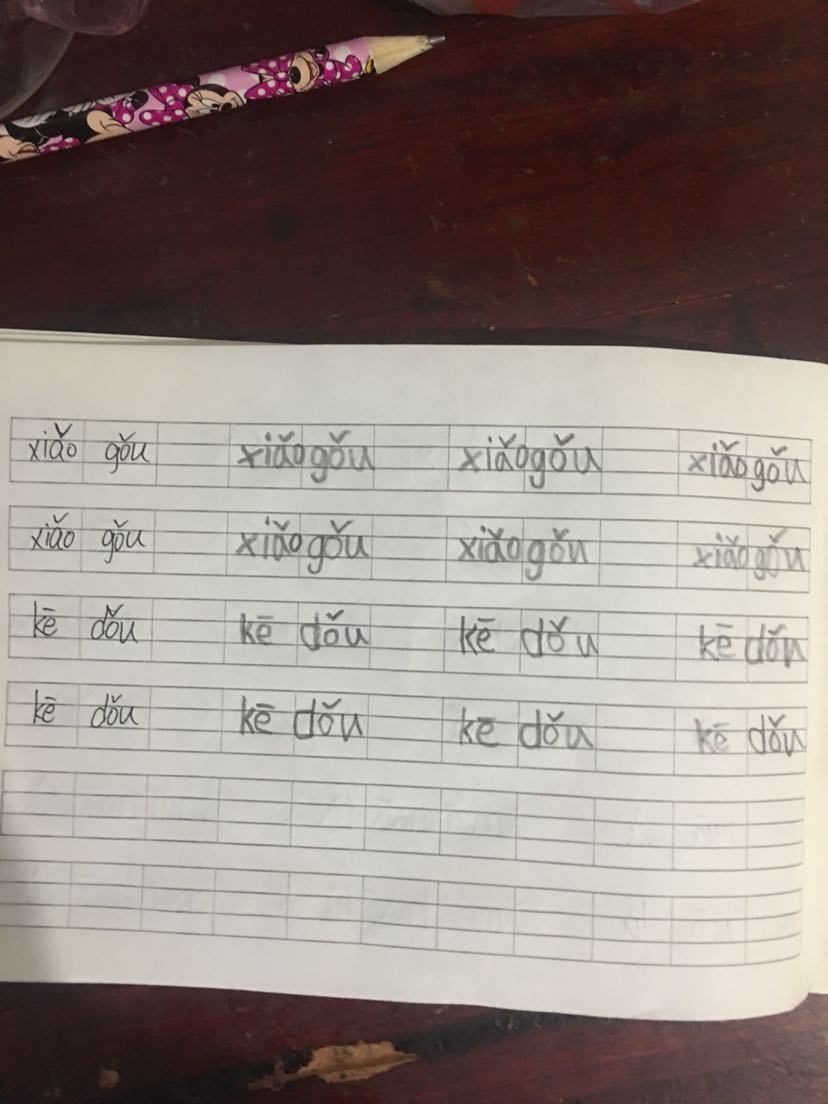 xiǎo gǒu xiǎo gǒu xiǎo gǒu xiǎo gǒu
xiǎo gǒu xiǎo gǒu xiǎo gǒu xiǎo gǒu
kē dǒu kē dǒu kē dǒu kē dǒu
kē dǒu kē dǒu kē dǒu kē dǒu